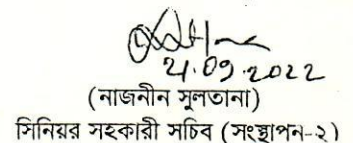 21.09.2022
(নাজনীন সুলতানা)
সিনিয়র সহকারী সচিব (সংস্থাপন-২)